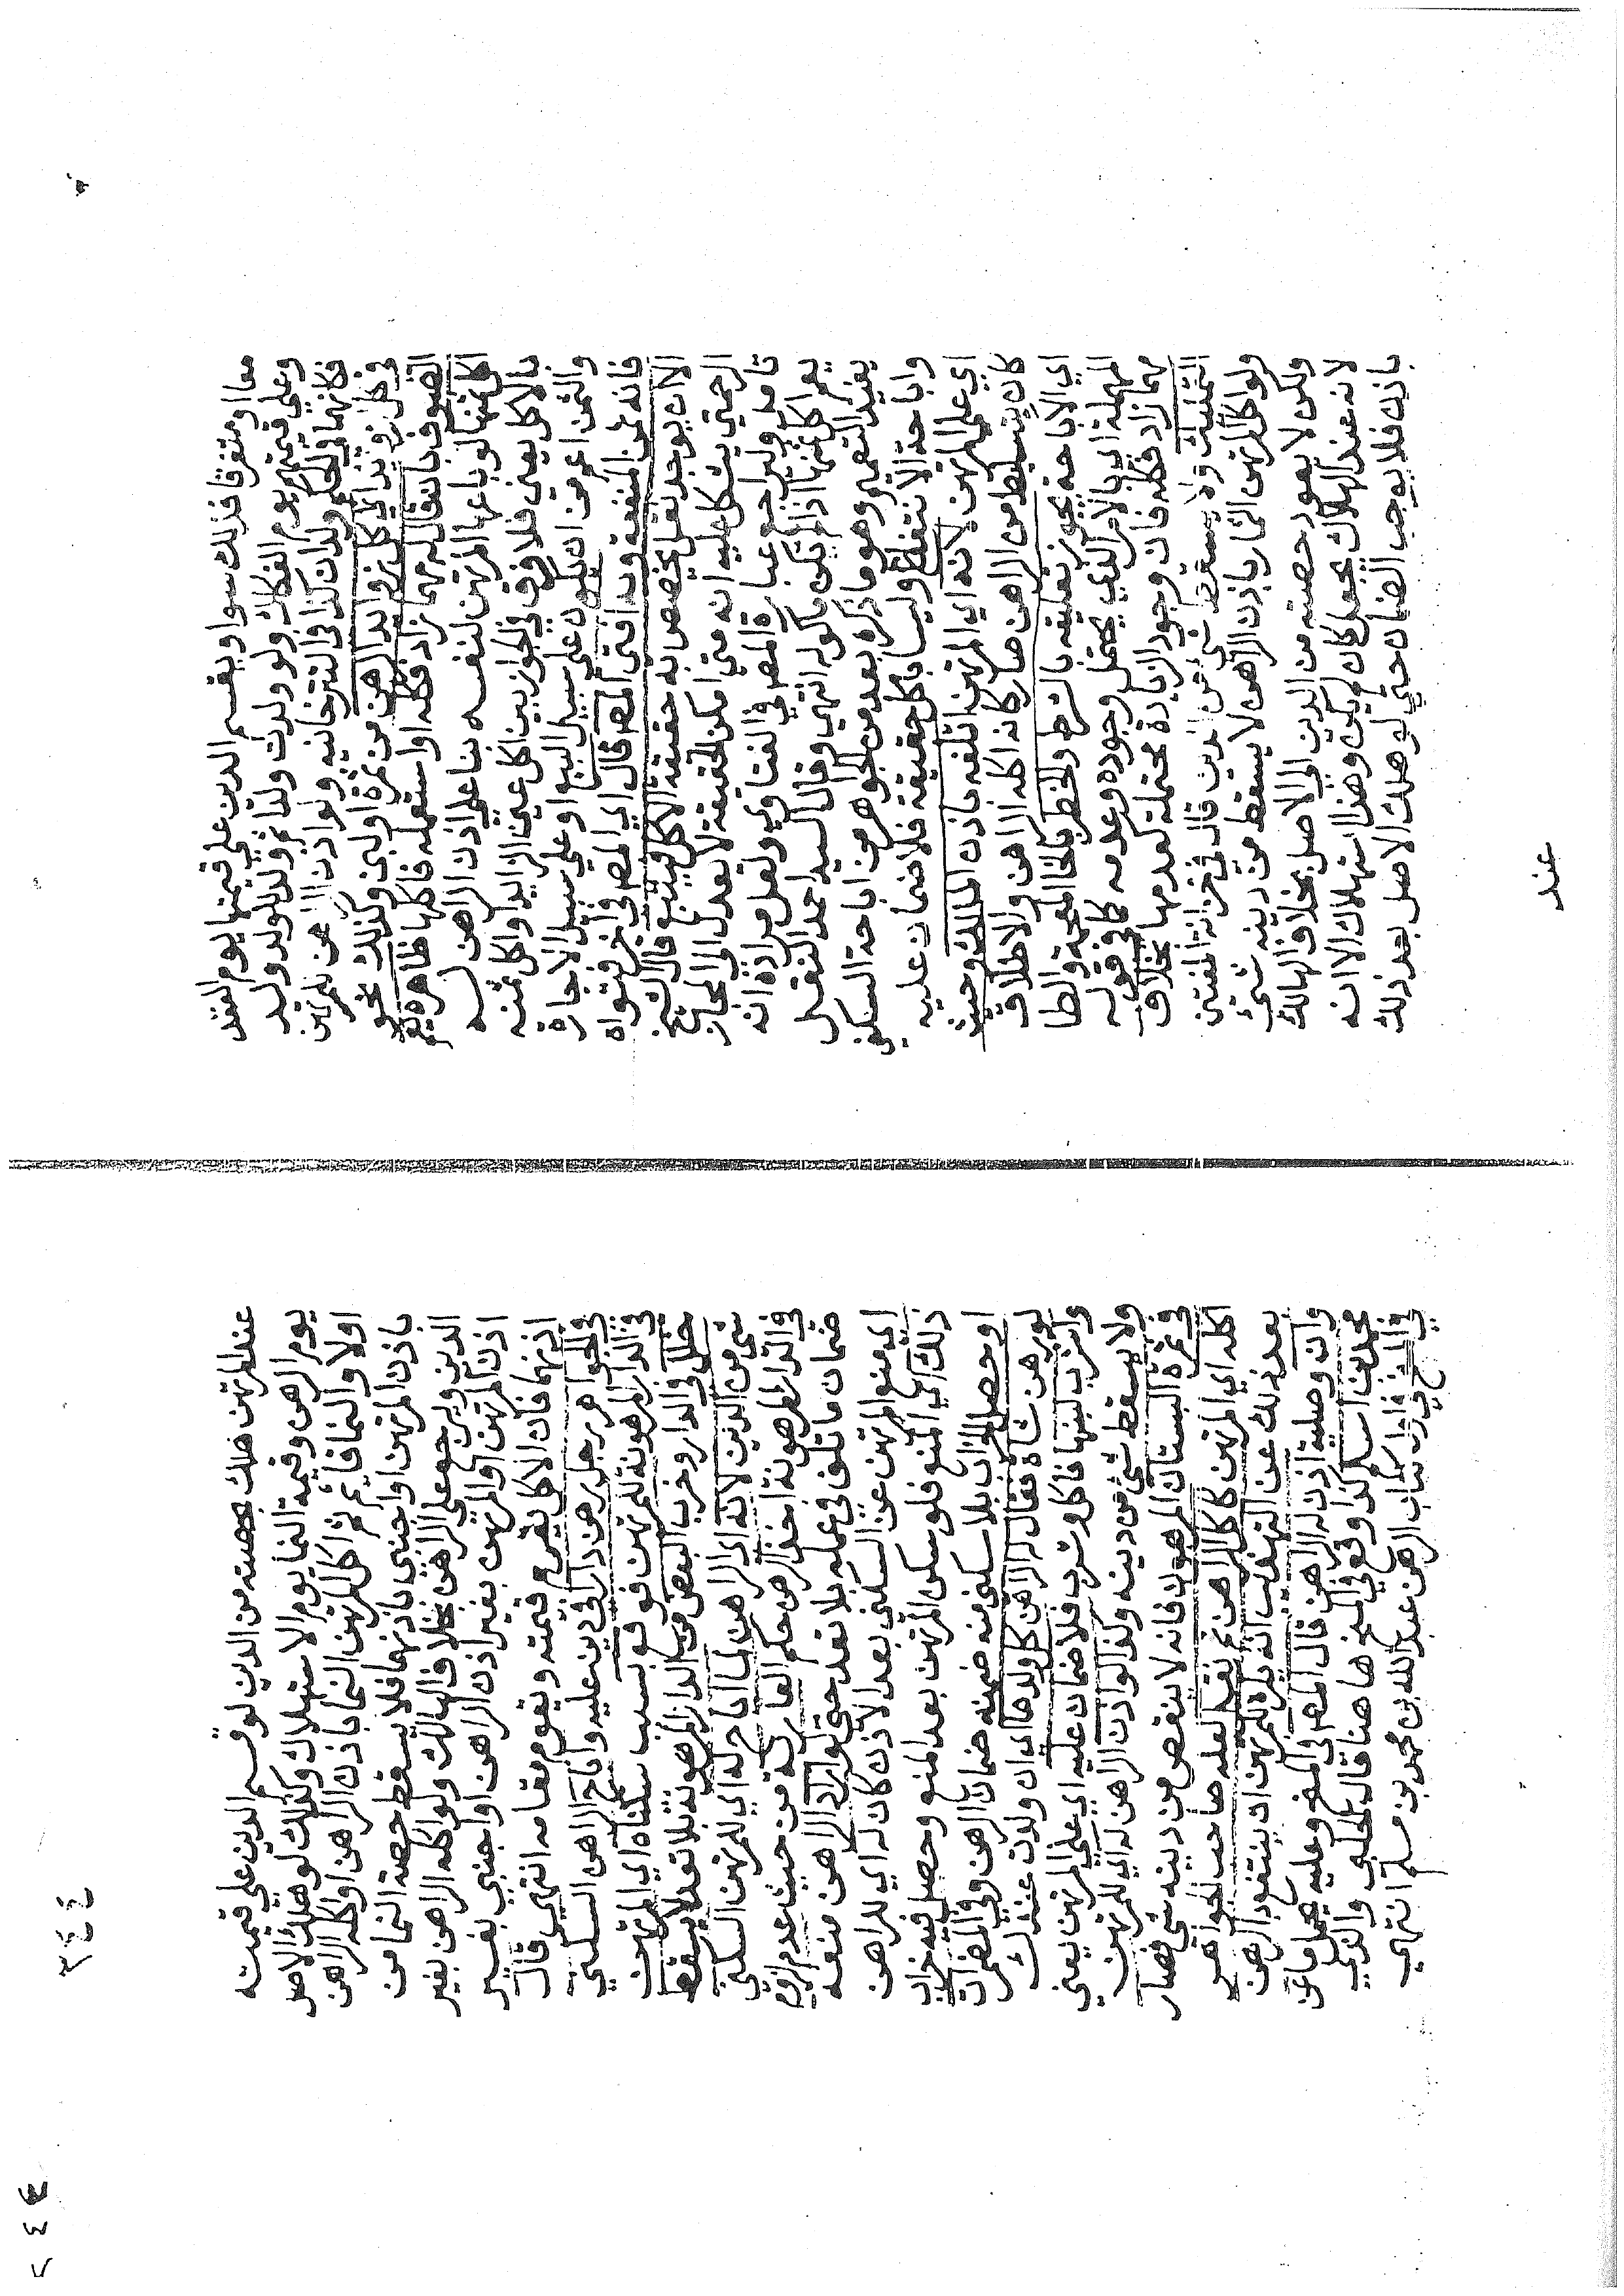 معا ومتفرقا فذلك سوا ويقسم الدين على قيمتها يوم العقد
وعلي قيمتهم يوم الفكاك ولو ولدت ولدا ثم ولد للولد ولد
فكانهما في الحكم ولدان كذا في التترخانيه ولو اذن الراهن للمرتهن
في اكل زوايد اي كل زوايد الرهن من ثمرة او لبن وكذلك نحو
الصوف بان قال له مهما زاد فكله او استعمله فاكلها ظاهره يعم
اكل ثمنها لو باعها المرتهن لنفسه بنا علي اذن الراهن له
بالاكل يعني فلا فرق في الجواز بين اكل عين الزايد او اكل ثمنه
والثمن اعم من ان يكون علي سبيل البيع او علي سبيل الاجارة
فانه ثمن المنفعة وبه افتى المص قال اي المص في اخر فتواه
الا ان يوجد نقل يخصص به حقيقة الاكل فيتبع قال الشيخ
الرحمتي يشكل عليه انه متى امكن الحقيقة لا يعدل الي المجاز
تامله وليراجع عبارة المص في الفتاوي ولعل مراده انه
يعم اكل ثمنها اذا لم يكن ماكوله انتهي وقال السيد احمد النقل
يفيد التعميم وهو ما ذكره بعد من الجواهر من اباحة السكنى
واباحة الانتفاع وليسا باكل حقيقة فلا ضمان عليه
اي علي المرتهن لانه اي المرتهن اتلفه باذن المالك وحيث
كان بتسليط من الراهن صار كانه اكله الراهن والاطلاق
اي الاباحة يجوز تعليقه بالشرط والخطر بالخا المعجمة والطا
المهملة اي بالامر الذي يحتمل وجوده وعدمه كما في قوله
مهما زاد فكله فان وجود الزيادة محتملة كعدمها بخلاف
التمليك ولا يسقط شي من الدين قال في خزانة المفتين
ولو اكل المرتهن الثمار باذن الراهن لا يسقط من دينه شي
ولكن لا يعود حصته من الدين الي الاصل بخلاف الهالك
لانه عند الهلاك يجعل كان لم يكن وهذا استهلاك الا انه
باذن فلا يوجب الضمان حتى لو هلك الاصل بعد ذلك
عند
عند المرتهن هلك بحصته من الدين لو قسم الدين علي قيمته
يوم الرهن وقيمة النما يوم الاستهلاك وكذلك لو هلك الاصل
اولا والنما قايم ثم اكل المرتهن النما باذن الراهن او اكله الراهن
باذن المرتهن او اجنبي باذنهما فلا يسقط حصة النما من
الدين ويرجع علي الراهن بخلاف الهالك ولو اكله الراهن بغير
اذن المرتهن او المرتهن بغير اذن الراهن او اجنبي بغير
اذنهما فان الاكل يغرم قيمته ويقوم مقامه انتهي قال
في الجواهر رجل رهن دارا في دين عليه واباح الراهن السكنى
في الدار المرهونة للمرتهن فوقع بسبب سكناه اي المرتهن
خلل في الدار وخرب البعض من الدار المرهونة بلا تعد لا يسقط
شي من الدين لانه اي الراهن لما اباح له اي للمرتهن السكنى
في الدار المرهونة اخذ الرهن حكم العارية من حيث عدم لزوم
ضمان ما تلف في عمله بلا تعد حتى لو اراد الراهن منعه
اي منع المرتهن عن السكنى بعد الاذن كان له اي للراهن
ذلك اي المنع فلو سكن المرتهن بعد المنع وحصل فيه خراب
او حصل الخراب بلا سكنى منه ضمنه ضمان الرهن وفي المضمرات
لو رهن شاة فقال له الراهن كل ولدها اي ان ولدت عندك
واشرب لبنها فاكل وشرب فلا ضمان عليه اي علي المرتهن يعني
ولا يسقط شي من دينه وكذا لو اذن الراهن له اي للمرتهن
في ثمرة البستان المرهون فانه لا ينقص من دينه شي فصار
اكله اي المرتهن كاكل الراهن ثم نقل لعله صاحب الجواهر
بعد ذلك عن التهذيب انه يكره للمرتهن ان ينتفع بالرهن
وان وصلية اذن له الراهن قال المص في المنح وعليه يحمل ما عن
محمد بن اسلم كذا وقع في المنح هاهنا قال الحلبي والذي
في المنح في اول كتاب الرهن عبد الله بن محمد بن مسلم انتهي
٣٤٤